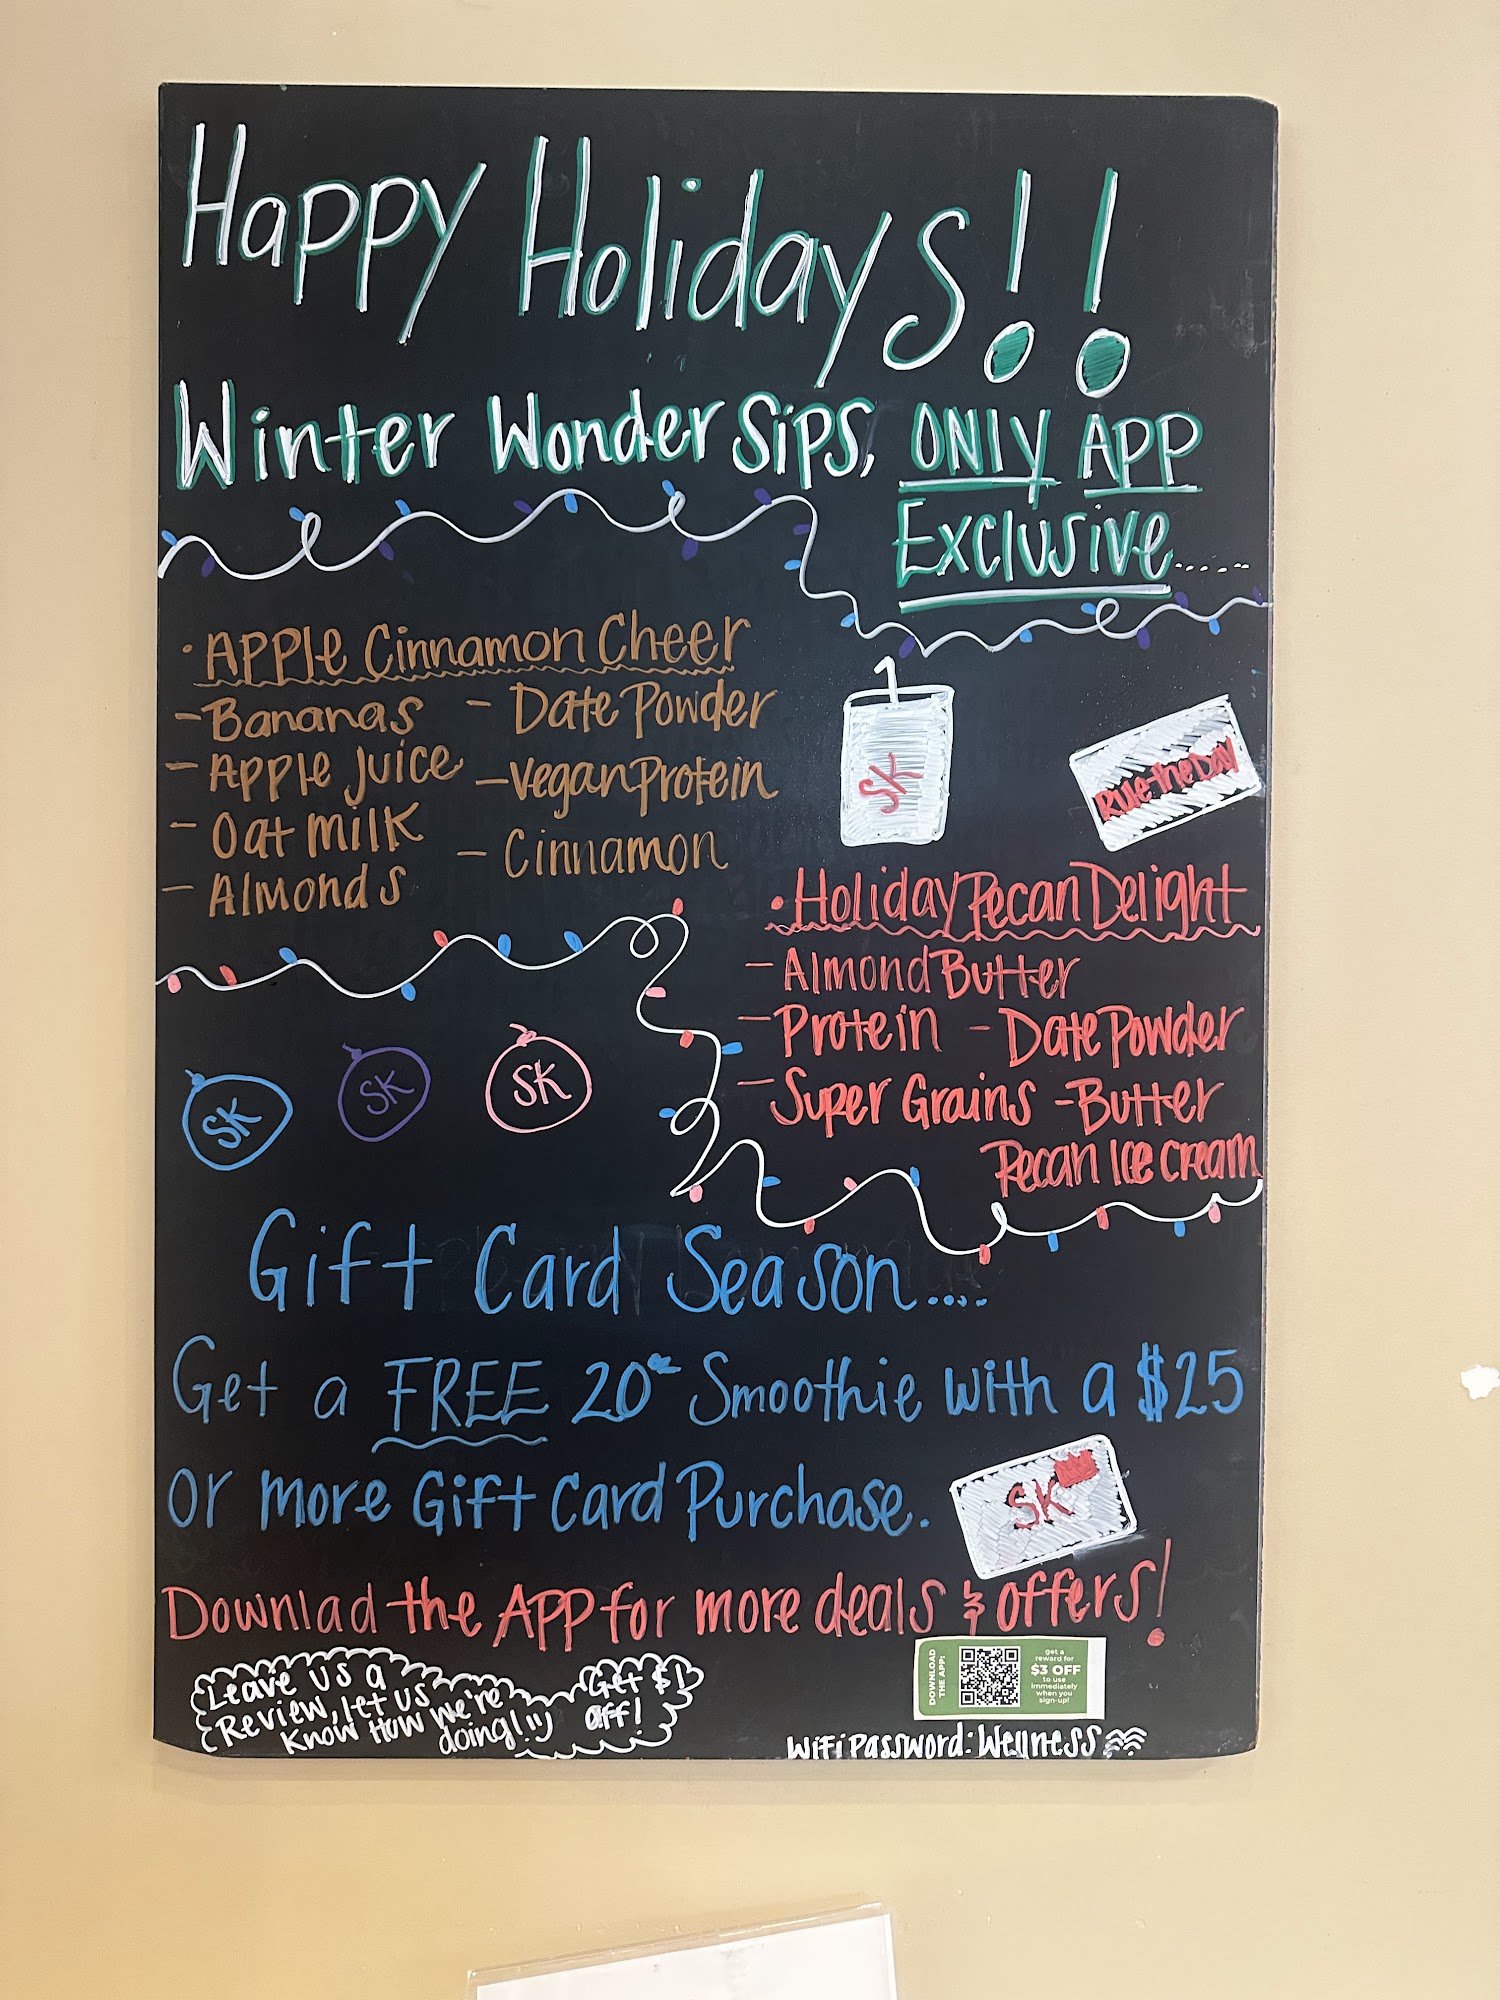 Happy Holidays!!
Winter Wonder Sips, ONLY APP
Exclusive......
· Apple Cinnamon Cheer
- Bananas - Date Powder
- Apple Juice - Vegan Protein
- Oat Milk - Cinnamon
- Almonds
SK
Rule the Day
· Holiday Pecan Delight
- Almond Butter
- Protein - Date Powder
- Super Grains - Butter
Pecan Ice Cream
SK
SK
SK
Gift Card Season....
Get a FREE 20oz Smoothie with a $25
or more Gift Card Purchase.
SK
Downlad the APP for more deals & offers!
DOWNLOAD
THE APP:
get a
reward for
$3 OFF
to use
immediately
when you
sign-up!
Leave us a
Review, let us
Know How we're
doing! :)
Get $1
off!
Wifi Password: Wellness